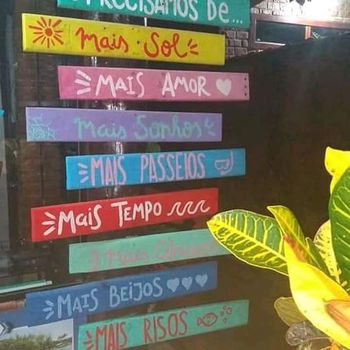 PRECISAMOS DE...
mais Sol
MAIS AMOR
mais Sonhos
MAIS PASSEIOS
MAIS TEMPO
mais
MAIS BEIJOS
MAIS RISOS